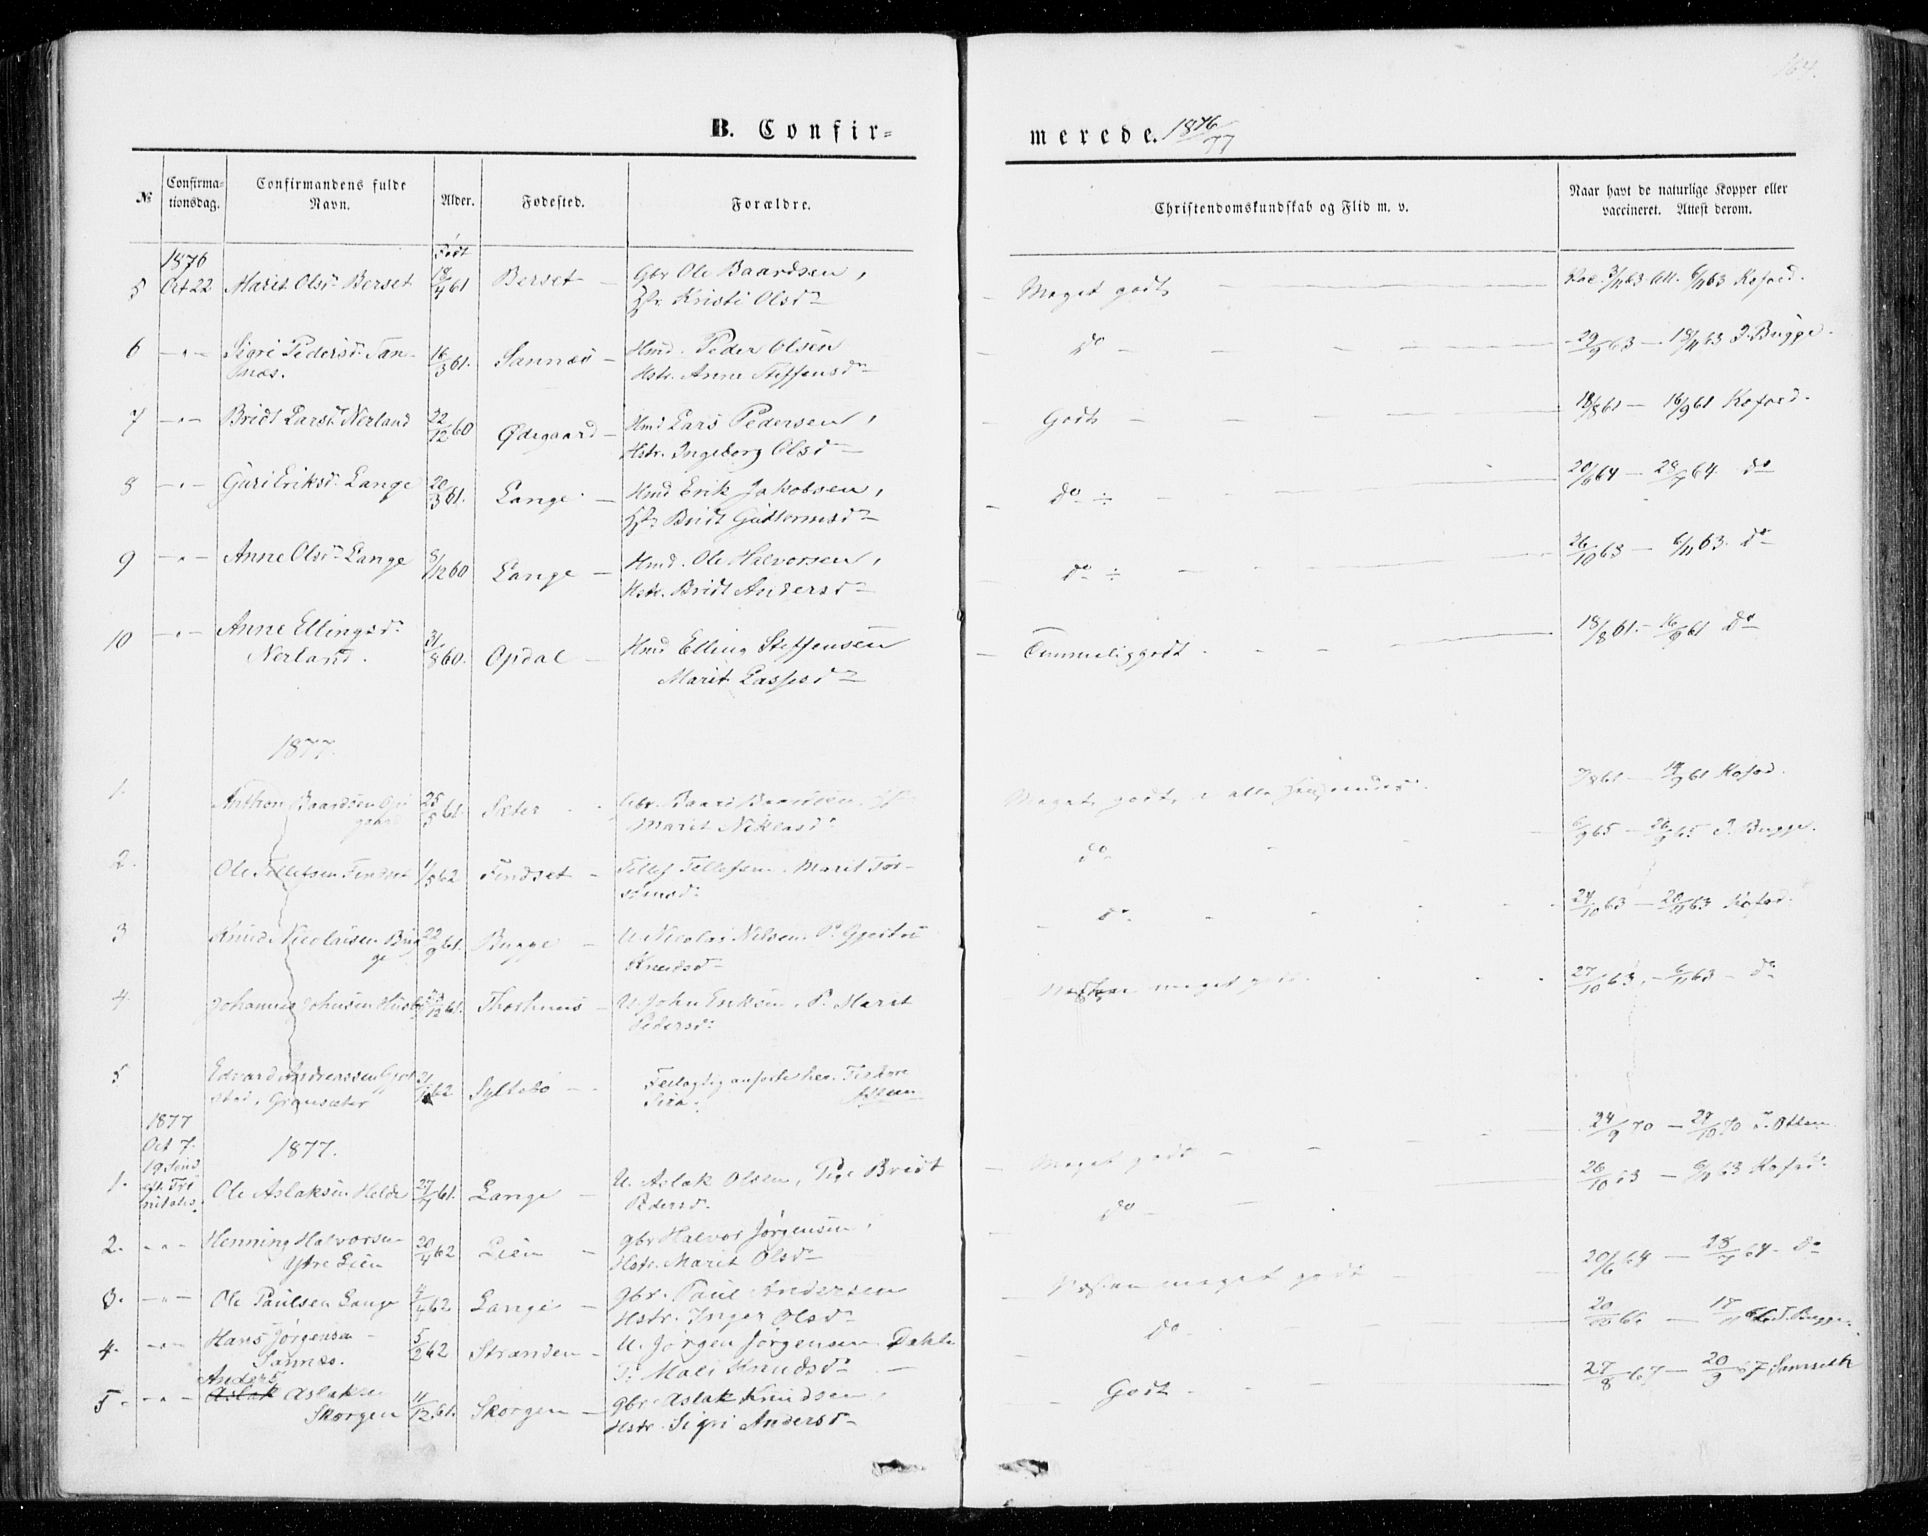 164.
B. Confir=
merede. 1876/77
№
Confirma=
tionsdag.
Confirmandens fulde
Navn.
Alder.
Fødested.
Forældre.
Christendomskundskab og Flid m. v.
Naar havt de naturlige Kopper eller
vaccineret. Attest derom.
Født
1876
5 Oct 22 Marit Olsd. Berset /4 61 Berset – Gbr Ole Baardsen, Hstr. Kristi Olsd. – Meget godt Vac. 3/11 63 Att. 6/11 63 Kofoed.
6 –"– Sigri Pedersd. San-
næs. 16/3 61. Sannæs – Hmd. Peder Olsen
Hstr. Anne Steffensd. – do – 29/9 63 – 18/11 63 J. Bugge.
7 –"– Bridt Larsd. Nerland 22/12 60 Ødegaard – Hmd Lars Pedersen,
Hstr. Ingeborg Olsd. – Godt – 18/8 61 – 16/9 61 Kofoed.
8 –"– Guri Eriksd. Lange 20/3 61. Lange – Hmd Erik Jakobsen,
Hstr Bridt Guttormsd. – do ÷ 20/6 64 – 28/7 64 do
9 –"– Anne Olsd. Lange 8/12 60 Lange – Hmd. Ole Halvorsen,
Hstr. Bridt Andersd. – do ÷ 26/10 63 – 6/11 63. do
10 –"– Anne Ellingsd.
Nerland. 31/8 60. Opdal – Hmd Elling Steffensen
Marit Lassesd. – Temmelig godt. 18/8 61. – 16/9 61 do
1877.
1. Anthon Baardsen 25/5 61. Sæter Gbr. Baard Baardsen
Marit Niklasd. Meget godt, i alle Henseender. 7/8 61 – 19/9 61 Kofod.
2. Ole Tellefsen Findset /5 62 Findset – Tellef Tellefsen. Marit Tor-
stensd. do 6/9 65 – 26/9 65 J. Bugge.
3 Knud Nicolaisen Bug
ge 22/9 61. Bugge – U. Nicolai Nilsen. P. Gjertru
Knudsd. do. 24/10 63 – 20/11 63 Kofod.
4. Johannes Johnsen Husby /12 61. Thorhuus – U. John Eriksen. P. Marit
Pedersd. Næsten meget godt. 27/10 63. – 6/11 63 – do
5 Edvard Andreassen
Gransæter 62 Syltebø – Feilagtig anført her.
1877
Oct 7. 1877.
19 Sønd
eft. Tri
nitatis. 24/9 70 – 27/10 70
1. Ole Aslaksen Helde 27/7 61. Lange – U. Aslak Olsen, Pige Bridt
Pedersd. – Meget godt 26/10 63 – 6/11 63 Kofod.
2. –"– Henning Halvorsen
Ytre Lien 20/4 62 Lien – gbr Halvor Jørgensen,
Hstr. Marit Olsd. – do – 20/6 64 – 28/7 64 – do
3. –"– Ole Paulsen Lange /4 62 Lange – gbr. Paul Andersen
Hstr. Inger Olsd. – Næsten meget godt
4. –"– Hans Jørgensen
Sannæs. 5/2 62 Stranden – U. Jørgen Jørgensen Dahle
P. Mali Knudsd. – do
5. –"– Anders
Aslak Aslaksen
Skorgen 11/12 61. Skorgen – gbr. Aslak Knudsen,
Hstr. Sigri Andersd. – Godt 27/8 67 – 20/9 67